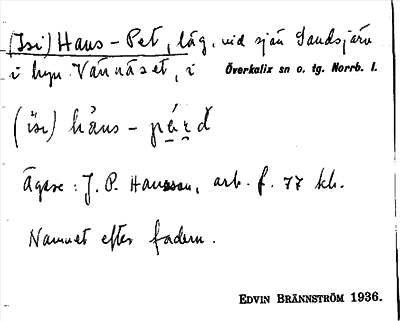 (Isi) Hans-Pet, läg. vid sjön Sandsjärv
i byn Vännäset, i Överkalix sn o. tg. Norrb. l.
(isi) håns-pä́rd
Ägare: J. P. Hansson, arb. f. 77 kl.
Namnet efter fadern.
EDVIN BRÄNNSTRÖM 1936.